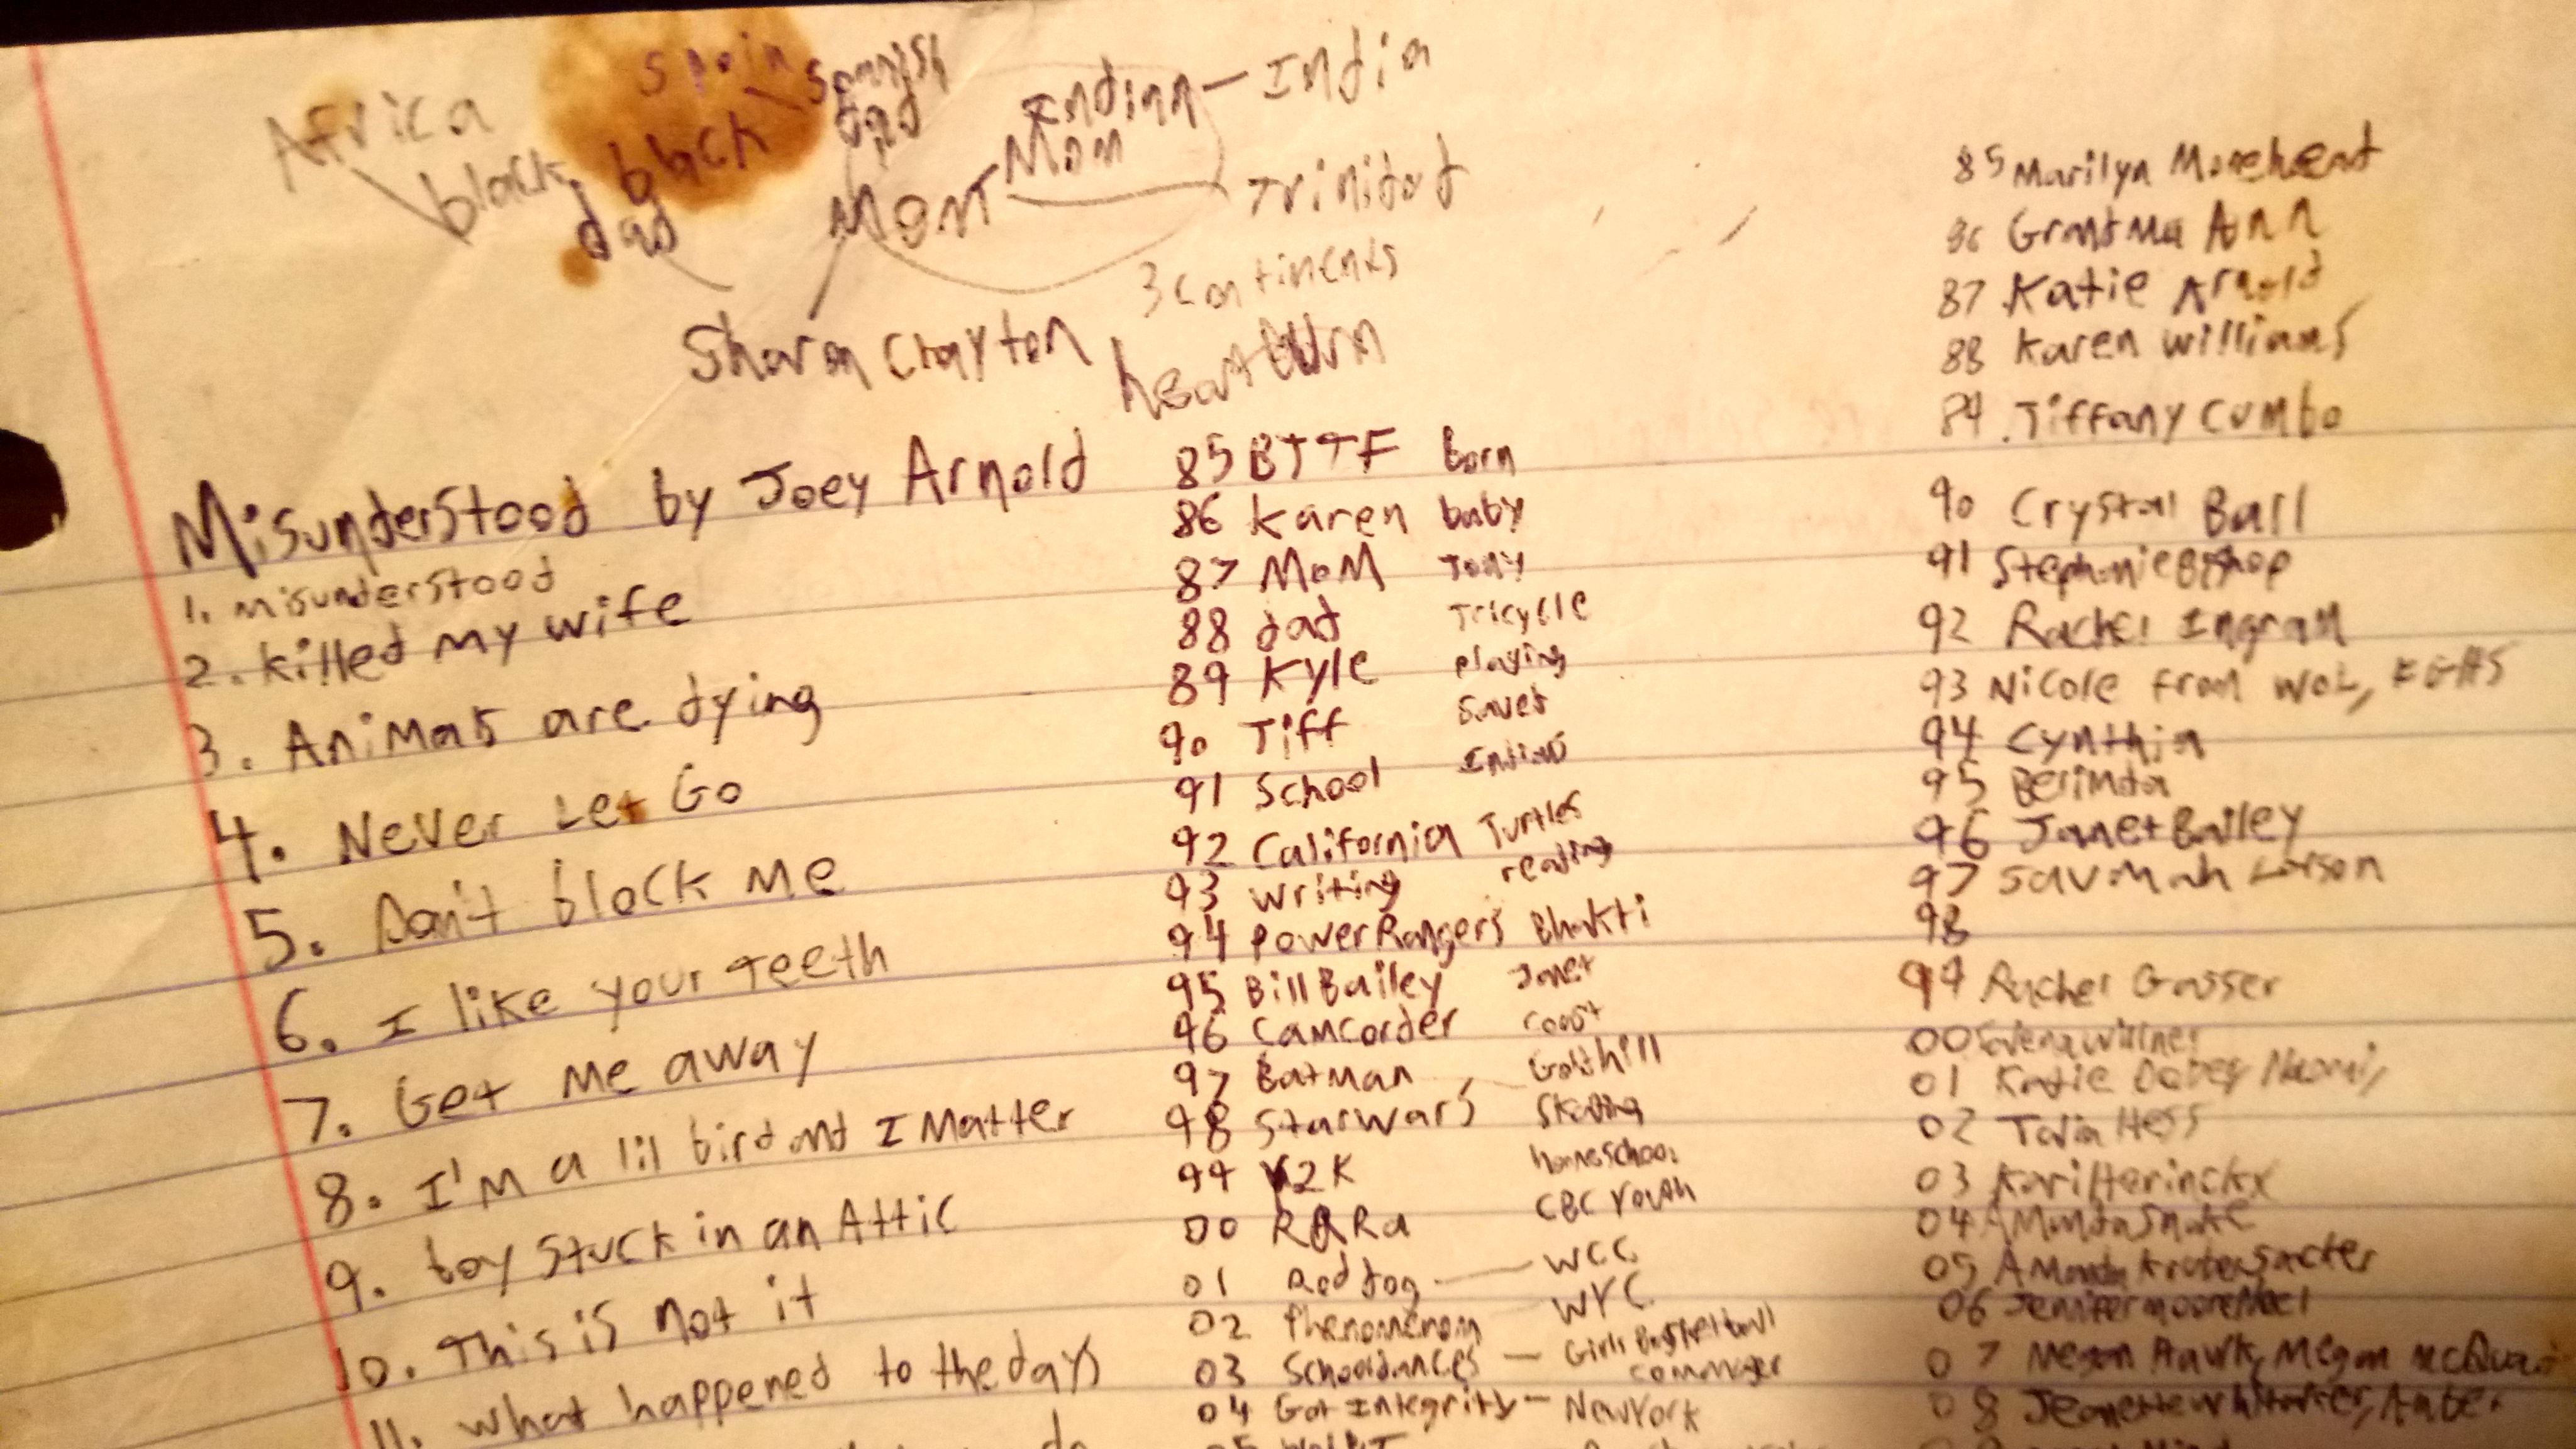 Africa
black
dad
black
Spain
Spanish
dad
Mom
Mom
Indian - India
Trinidad
3 continents
Sharon Clayton
Misunderstood by Joey Arnold
1. misunderstood
2. killed my wife
3. Animals are dying
4. Never Let Go
5. Don't block me
6. I like your teeth
7. Get me away
8. I'm a lil bird and I Matter
9. toy stuck in an Attic
10. This is not it
11. what happened to the days
85 BTTF Born
86 Karen baby
87 MoM Tony
88 dad Tricycle
89 Kyle playing
90 Tiff saved
91 School
92 California Turtles
93 writing reading
94 Power Rangers Bhakti
95 Bill Bailey Janet
96 Camcorder coast
97 Batman Goldhill
98 Star Wars skating
99 Y2K homeschool
00 RARa CBC Youth
01 Red dog - WCC
02 Phenomenom WYC
03 School dances - Girls Basketball
04 Got Integrity - New York
85 Marilyn
86 Grandma Ann
87 Katie Arnold
88 Karen Williams
89. Tiffany Cumbo
90 Crystal Ball
91 Stephanie Bishop
92 Rachel Ingram
93 Nicole from WOL,
94 Cynthia
95
96 Janet Bailey
97 Savannah Larson
98
99 Rachel Gasser
00
01 Katie Naomi,
02 Talia Hess
03 Kari Herinckx
04 Amanda
05 Amanda
06 Jennifer
07 Megan Hawk, Megan
08 Jeanette Whitaker, Amber